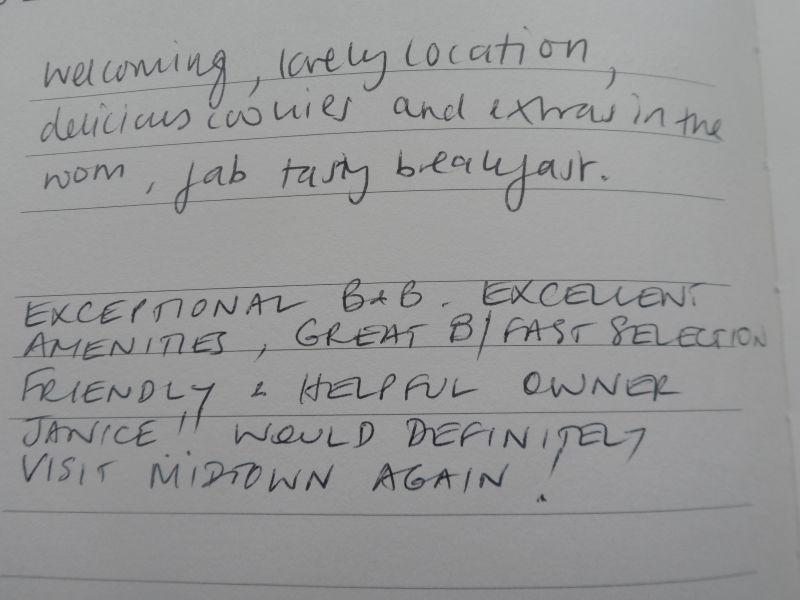 welcoming, lovely location,
delicious cookies and extras in the
room, fab tasty breakfast.
EXCEPTIONAL B&B. EXCELLENT
AMENITIES, GREAT B/FAST SELECTION
FRIENDLY & HELPFUL OWNER
JANICE!! WOULD DEFINITELY
VISIT MIDTOWN AGAIN!